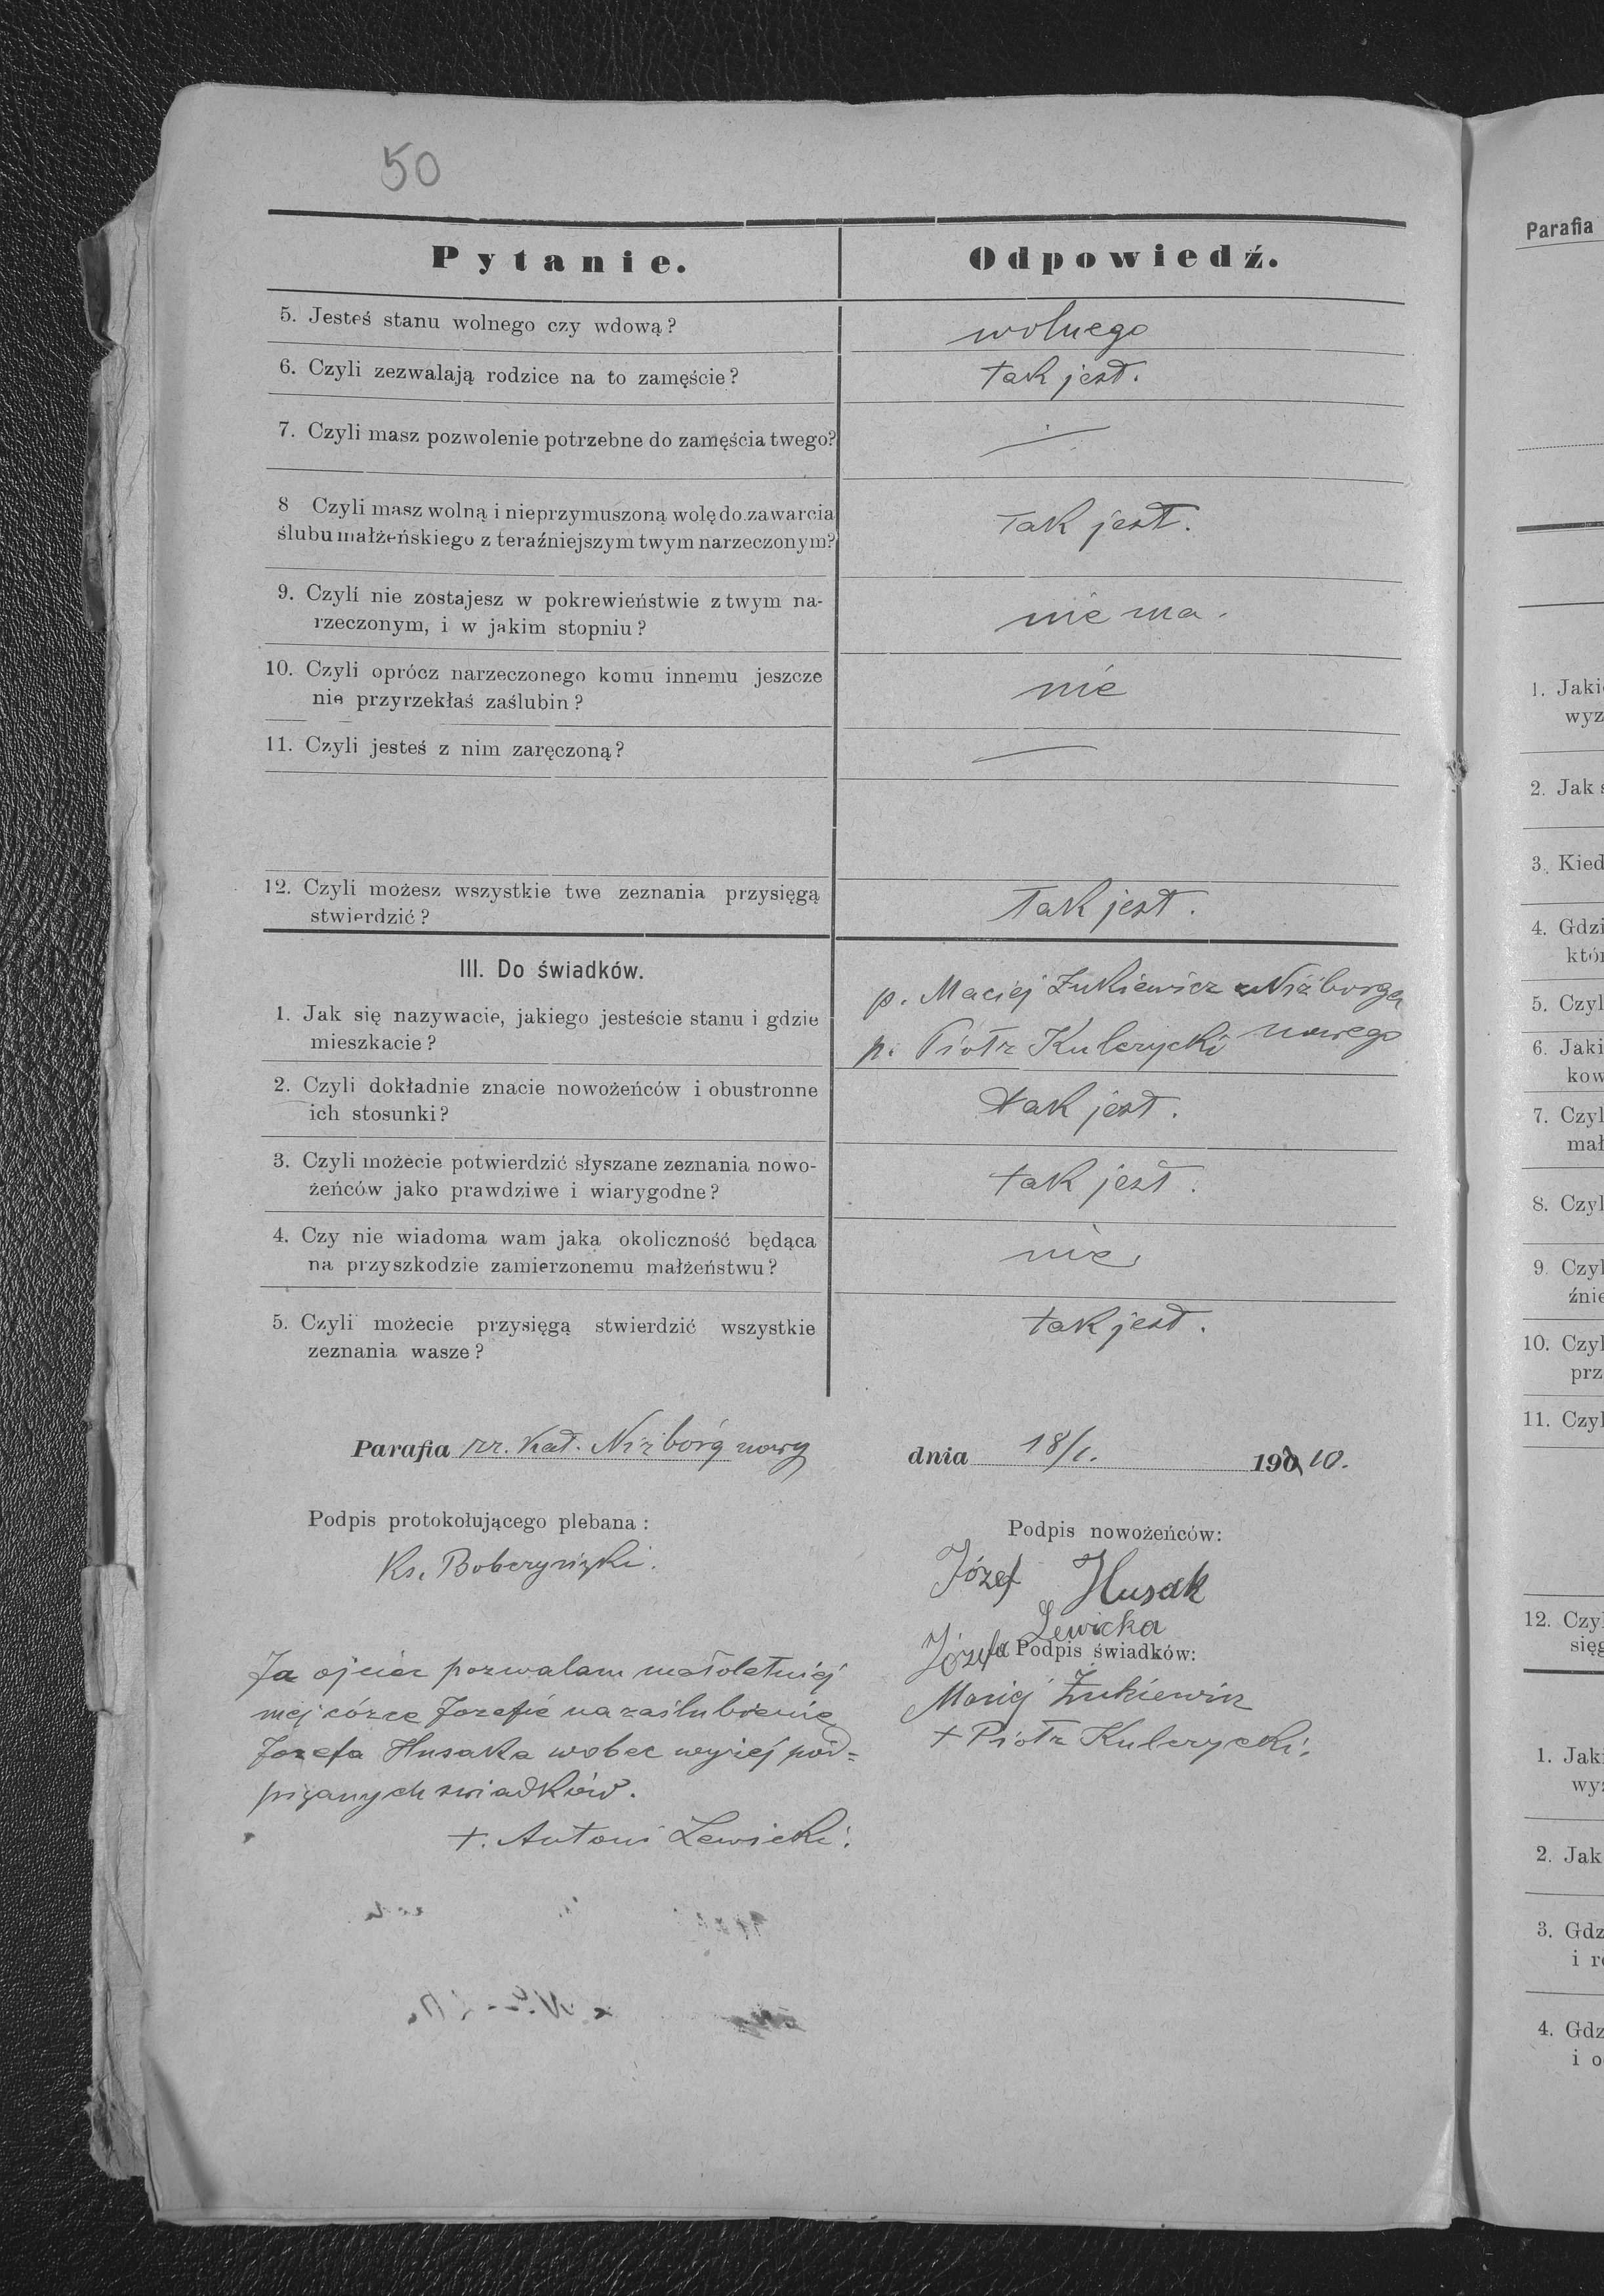 50
Pytanie. Odpowiedź.
5. Jesteś stanu wolnego czy wdową? wolnego
6. Czyli zezwalają rodzice na to zamęście? tak jest.
7. Czyli masz pozwolenie potrzebne do zamęścia twego?
8 Czyli masz wolną i nieprzymuszoną wolę do zawarcia
ślubu małżeńskiego z teraźniejszym twym narzeczonym? Tak jest.
9. Czyli nie zostajesz w pokrewieństwie z twym na-
rzeczonym, i w jakim stopniu? nie ma.
10. Czyli oprócz narzeczonego komu innemu jeszcze
nie przyrzekłaś zaślubin? nie
11. Czyli jesteś z nim zaręczoną?
12. Czyli możesz wszystkie twe zeznania przysięgą
stwierdzić? Tak jest.
III. Do świadków.
1. Jak się nazywacie, jakiego jesteście stanu i gdzie
mieszkacie?
p. Maciej Żukiewicz z Niżborga
p. Piotr Kulczycki nowego
2. Czyli dokładnie znacie nowożeńców i obustronne
ich stosunki? tak jest.
3. Czyli możecie potwierdzić słyszane zeznania nowo-
żeńców jako prawdziwe i wiarygodne? tak jest.
4. Czy nie wiadoma wam jaka okoliczność będąca
na przyszkodzie zamierzonemu małżeństwu? nie
5. Czyli możecie przysięgą stwierdzić wszystkie
zeznania wasze? tak jest.
Parafia rz. kat. Niżborg nowy dnia 18/1. 190 10.
Podpis protokołującego plebana:
Ks. Boberzyński.
Podpis nowożeńców:
Józef Husak
Józefa Lewicka
Podpis świadków:
Maciej Żukiewicz
+ Piotr Kulczycki.
Ja ojciec pozwalam małoletniej
mej córce Jozefie na zaślubienie
Jozefa Husaka wobec wyżej pod=
pisanych świadków.
+. Antoni Lewicki.
Parafia
1. Jaki
wyz
2. Jak
3. Kied
4. Gdzi
któr
5. Czyl
6. Jaki
kow
7. Czyl
mał
8. Czyl
9. Czyl
źnie
10. Czyl
prz
11. Czyl
12. Czyl
sięg
1. Jak
wyz
2. Jak
3. Gdz
i r
4. Gdz
i o